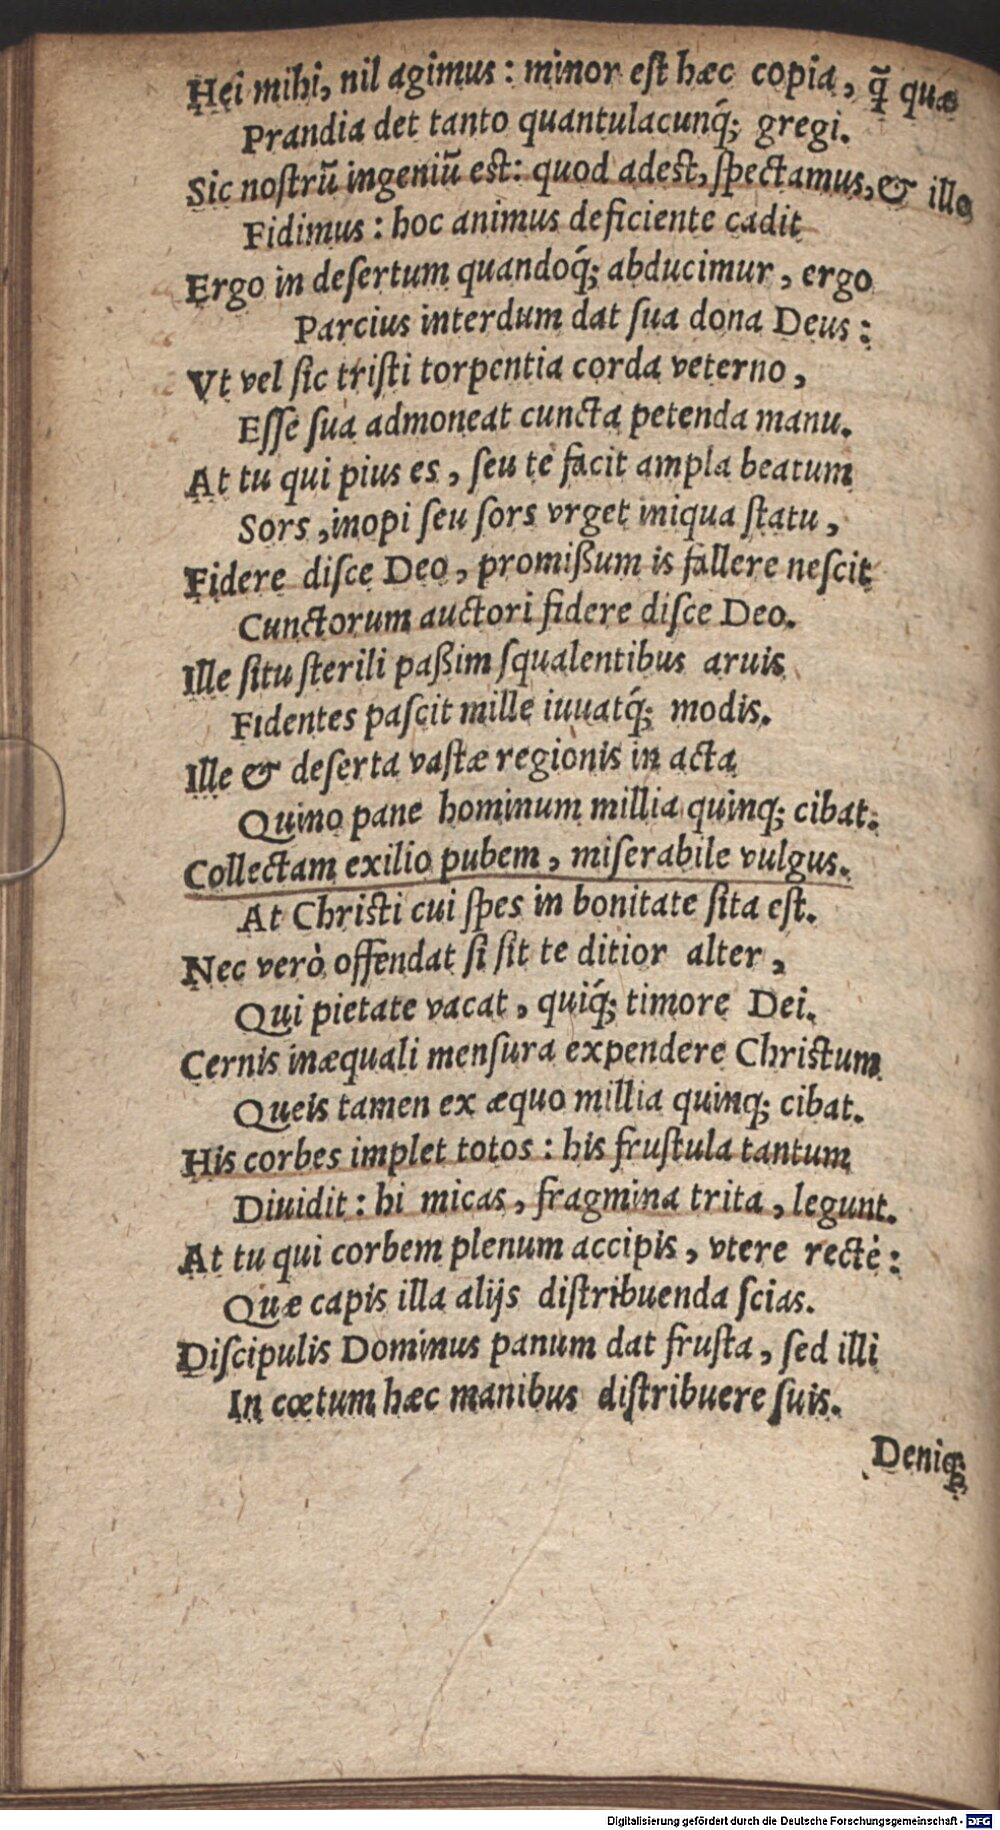 Hei mihi, nil agimus: minor est hæc copia, q̃ quæ
Prandia det tanto quantulacunq́; gregi.
Sic nostrũ ingeniũ est: quod adest, spectamus, & illo
Fidimus: hoc animus deficiente cadit
Ergo in desertum quandoq́; abducimur, ergo
Parcius interdum dat sua dona Deus:
Vt vel sic tristi torpentia corda veterno,
Esse sua admoneat cuncta petenda manu.
At tu qui pius es, seu te facit ampla beatum
Sors, inopi seu sors vrget iniqua statu,
Fidere disce Deo, promißum is fallere nescit
Cunctorum auctori fidere disce Deo.
Ille situ sterili paßim squalentibus aruis
Fidentes pascit mille iuuatq́; modis.
Ille & deserta vastæ regionis in acta
Quino pane hominum millia quinq; cibat.
Collectam exilio pubem, miserabile vulgus.
At Christi cui spes in bonitate sita est.
Nec verò offendat si sit te ditior alter,
Qui pietate vacat, quiq́; timore Dei.
Cernis inæquali mensura expendere Christum
Queis tamen ex æquo millia quinq; cibat.
His corbes implet totos: his frustula tantum
Diuidit: hi micas, fragmina trita, legunt.
At tu qui corbem plenum accipis, vtere rectè:
Quæ capis illa alijs distribuenda scias.
Discipulis Dominus panum dat frusta, sed illi
In cœtum hæc manibus distribuere suis.
Deniq;
Digitalisierung gefördert durch die Deutsche Forschungsgemeinschaft - DFG